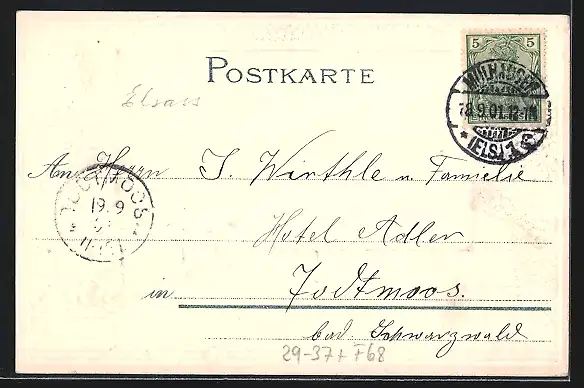 POSTKARTE
5
Elsass
MÜLHAUSEN
18.9.01.12-1N
* (ELS.) 1
An Herrn J. Wirthle u. Familie
TODTMOOS
19.9
Hotel Adler
in Todtmoos.
bad. Schwarzwald
29-37+F68